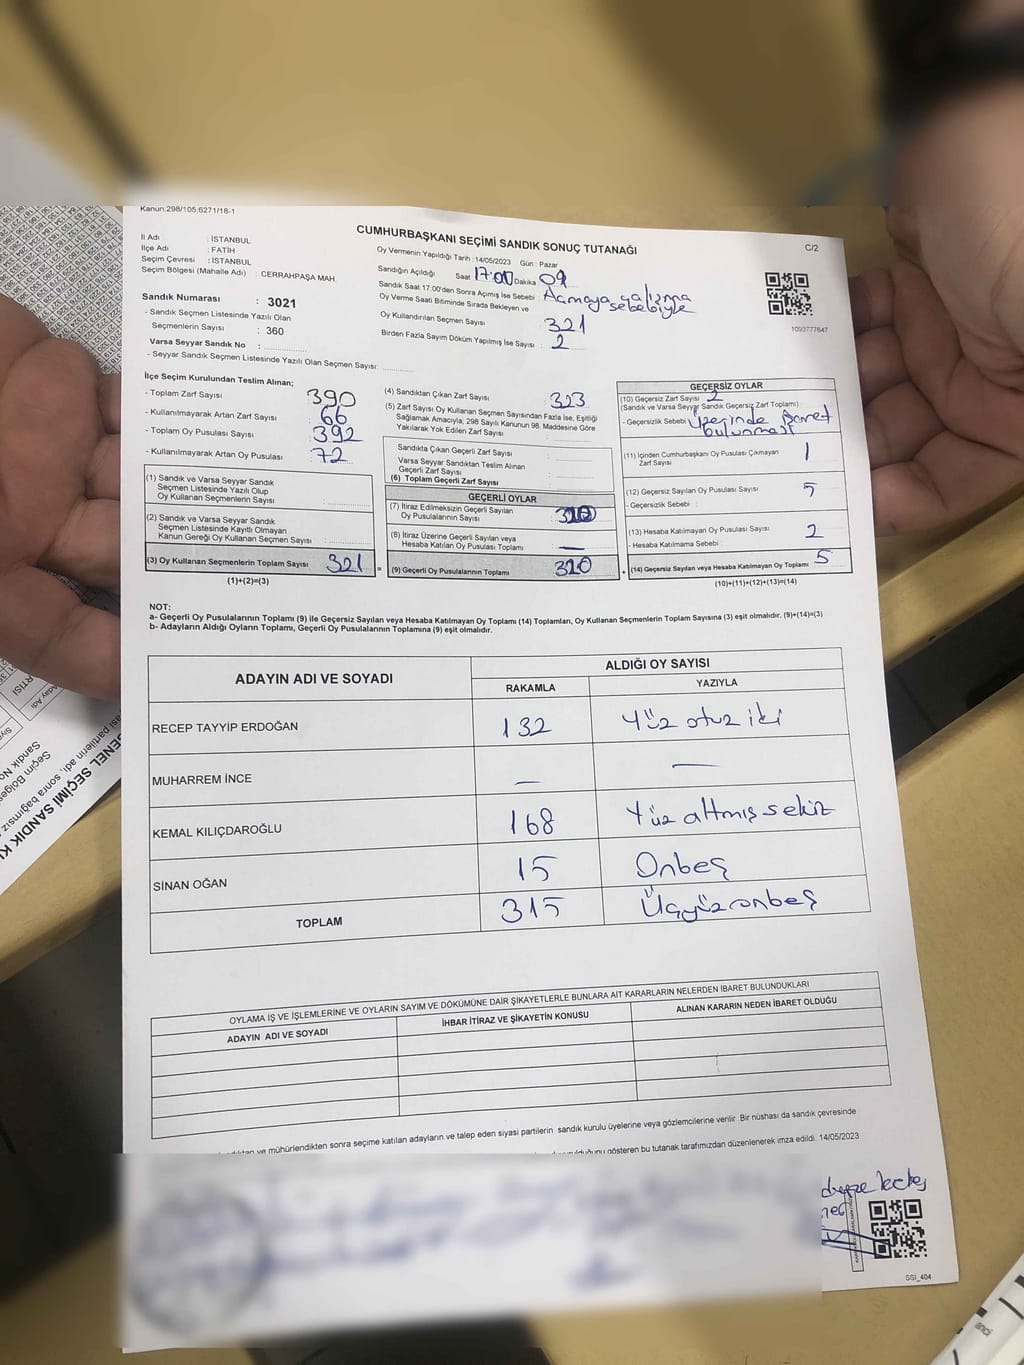 Kanun;298/105;6271/18-1
CUMHURBAŞKANI SEÇİMİ SANDIK SONUÇ TUTANAĞI
C/2
İl Adı : İSTANBUL
İlçe Adı : FATİH
Seçim Çevresi : İSTANBUL
Seçim Bölgesi (Mahalle Adı) : CERRAHPAŞA MAH.
Sandık Numarası : 3021
- Sandık Seçmen Listesinde Yazılı Olan
Seçmenlerin Sayısı : 360
Varsa Seyyar Sandık No :
- Seyyar Sandık Seçmen Listesinde Yazılı Olan Seçmen Sayısı:
Oy Vermenin Yapıldığı Tarih :14/05/2023 Gün : Pazar
Sandığın Açıldığı Saat 17:00 Dakika 09
Sandık Saat 17:00'den Sonra Açmış İse Sebebi : Açmaya çalışma
sebebiyle
Oy Verme Saati Bitiminde Sırada Bekleyen ve
Oy Kullandırılan Seçmen Sayısı 321
Birden Fazla Sayım Döküm Yapılmış İse Sayısı : 2
1093777647
İlçe Seçim Kurulundan Teslim Alınan;
- Toplam Zarf Sayısı : 390
- Kullanılmayarak Artan Zarf Sayısı : 66
- Toplam Oy Pusulası Sayısı : 392
- Kullanılmayarak Artan Oy Pusulası : 72
(1) Sandık ve Varsa Seyyar Sandık
Seçmen Listesinde Yazılı Olup
Oy Kullanan Seçmenlerin Sayısı :
(2) Sandık ve Varsa Seyyar Sandık
Seçmen Listesinde Kayıtlı Olmayan
Kanun Gereği Oy Kullanan Seçmen Sayısı :
(3) Oy Kullanan Seçmenlerin Toplam Sayısı 321 =
(1)+(2)=(3)
(4) Sandıktan Çıkan Zarf Sayısı : 323
(5) Zarf Sayısı Oy Kullanan Seçmen Sayısından Fazla İse, Eşitliği
Sağlamak Amacıyla; 298 Sayılı Kanunun 98. Maddesine Göre
Yakılarak Yok Edilen Zarf Sayısı :
Sandıkta Çıkan Geçerli Zarf Sayısı :
Varsa Seyyar Sandıktan Teslim Alınan
Geçerli Zarf Sayısı :
(6) Toplam Geçerli Zarf Sayısı :
GEÇERLİ OYLAR
(7) İtiraz Edilmeksizin Geçerli Sayılan
Oy Pusulalarının Sayısı :
(8) İtiraz Üzerine Geçerli Sayılan veya
Hesaba Katılan Oy Pusulası Toplamı : —
(9) Geçerli Oy Pusulalarının Toplamı +
GEÇERSİZ OYLAR
(10) Geçersiz Zarf Sayısı : 2
(Sandık ve Varsa Seyyar Sandık Geçersiz Zarf Toplamı)
- Geçersizlik Sebebi : Üzerinde işaret
bulunması
(11) İçinden Cumhurbaşkanı Oy Pusulası Çıkmayan
Zarf Sayısı 1
(12) Geçersiz Sayılan Oy Pusulası Sayısı :
- Geçersizlik Sebebi :
(13) Hesaba Katılmayan Oy Pusulası Sayısı : 2
- Hesaba Katılmama Sebebi :
(14) Geçersiz Sayılan veya Hesaba Katılmayan Oy Toplamı 5
(10)+(11)+(12)+(13)=(14)
NOT:
a- Geçerli Oy Pusulalarının Toplamı (9) ile Geçersiz Sayılan veya Hesaba Katılmayan Oy Toplamı (14) Toplamları, Oy Kullanan Seçmenlerin Toplam Sayısına (3) eşit olmalıdır. (9)+(14)=(3)
b- Adayların Aldığı Oyların Toplamı, Geçerli Oy Pusulalarının Toplamına (9) eşit olmalıdır.
ADAYIN ADI VE SOYADI
ALDIĞI OY SAYISI
RAKAMLA YAZIYLA
RECEP TAYYİP ERDOĞAN 132 Yüz otuz iki
MUHARREM İNCE — —
KEMAL KILIÇDAROĞLU 168 Yüz altmış sekiz
SİNAN OĞAN 15 Onbeş
TOPLAM 315 Üçyüzonbeş
OYLAMA İŞ VE İŞLEMLERİNE VE OYLARIN SAYIM VE DÖKÜMÜNE DAİR ŞİKAYETLERLE BUNLARA AİT KARARLARIN NELERDEN İBARET BULUNDUKLARI
ADAYIN ADI VE SOYADI İHBAR İTİRAZ VE ŞİKAYETİN KONUSU ALINAN KARARIN NEDEN İBARET OLDUĞU
ve mühürlendikten sonra seçime katılan adayların ve talep eden siyasi partilerin sandık kurulu üyelerine veya gözlemcilerine verilir .Bir nüshası da sandık çevresinde
gösteren bu tutanak tarafımızdan düzenlenerek imza edildi. 14/05/2023
SSİ_404